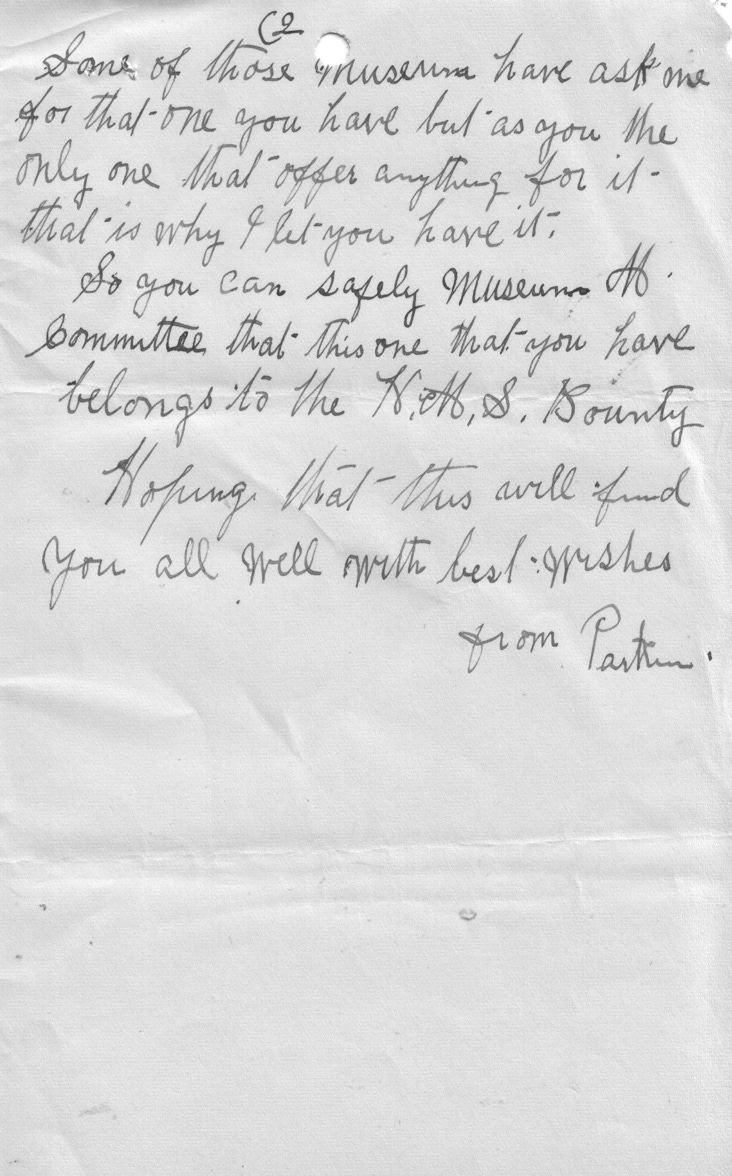 (2
Some of those Museum have ask me
for that one you have but as you the
only one that offer anything for it
that is why I let you have it.
So you can safely Museum M.
Committee that this one that you have
belongs to the H.M.S. Bounty
Hoping that this will find
you all well with best wishes
from Parkin.